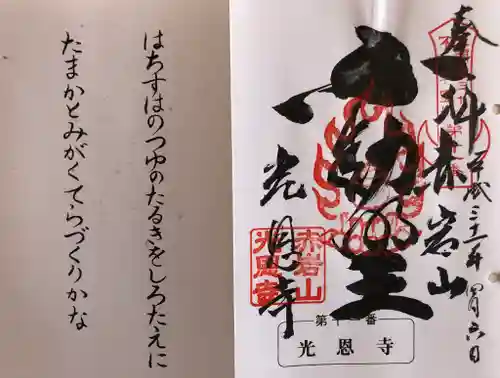 奉拝
赤岩山
平成三十一年四月六日
不動明王
光恩寺
赤岩山
光恩寺
第十一番
光恩寺
はちすはのつゆのたるきをしろたえに
たまかとみがくてらづくりかな